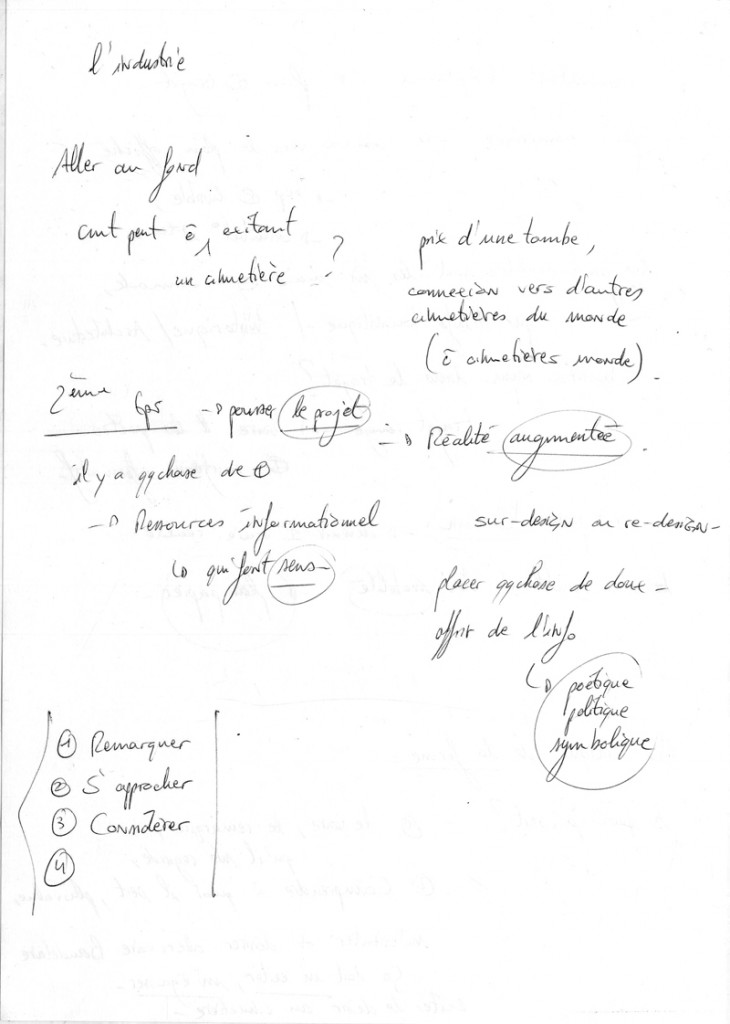 l'industrie
Aller au fond
peut ē excitant
un cimetière ?
prix d'une tombe,
connexion vers d'autres
cimetières du monde
(ē cimetières monde).
2ème tps → pousser le projet
→ Réalité augmentée.
il y a qqchose de ⊕
→ Ressources informationnel
↳ qui font sens -
sur-design ou re-design -
placer qqchose de doux -
offrir de l'info
↳ poétique
politique
symbolique
① Remarquer
② S'approcher
③ Considérer
④